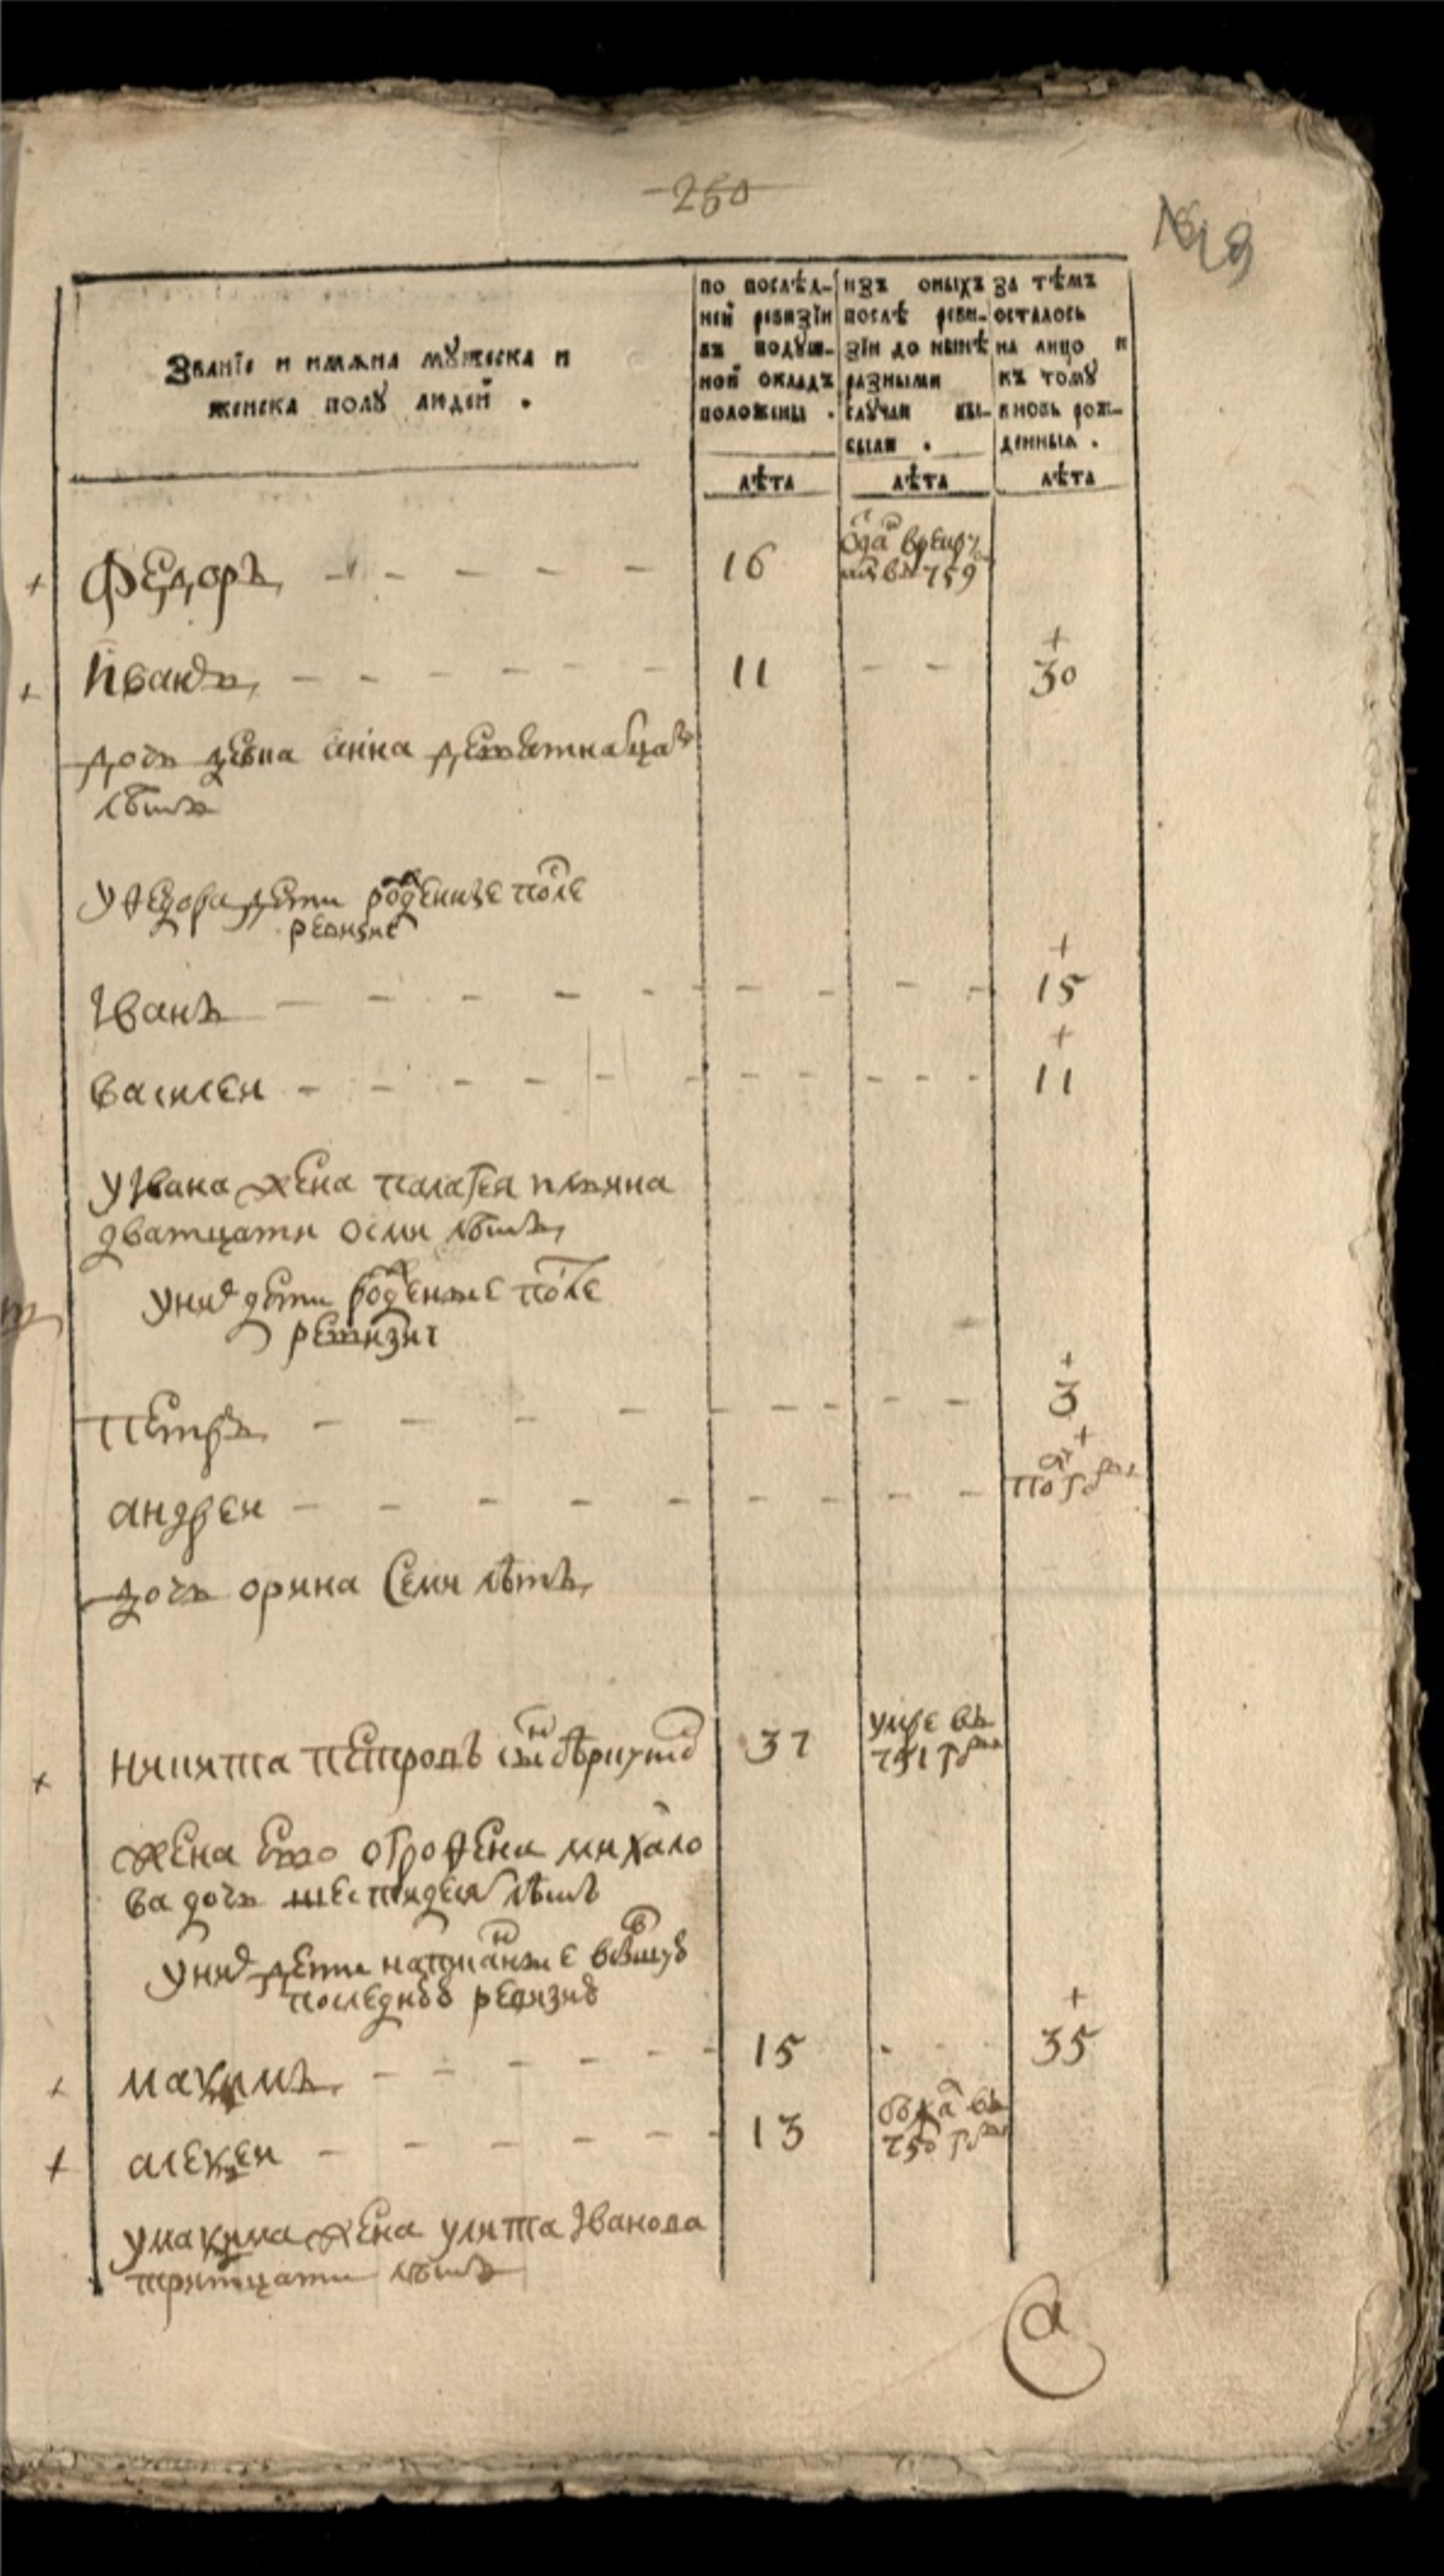 250
№ 19
Званїе и имѧна мꙋжеска и
женска полꙋ людей .
по послѣд-
ней ревизїи
въ подꙋш-
ной окладъ
положены .
изъ оныхъ
послѣ реви-
зїи до нынѣ
разными
слꙋчаи вы-
были .
за тѣмъ
осталось
на лицо и
къ томꙋ
вновь рож-
денныѧ .
лѣта лѣта лѣта
Федоръ 16
въ 759
Иванъ 11 30
дочь анна
лѣтъ
у Федора дети рожденные после
ревизие
Іванъ 15
василеи 11
у Івана жена палагея
дватцати осми лѣтъ
у них дети рожденные после
ревизиі
Петръ 3
андреи
дочь орина семи лѣтъ
никита петровъ сынъ 37 умре въ
751 году
жена ево офросенья михаило
ва дочь шестидесят лѣтъ
у них дети написанные в бывшую
последнюю ревизию
максимъ 15 35
алексеи 13 въ
750 году
у максима жена улита Іванова
тритцати лѣтъ